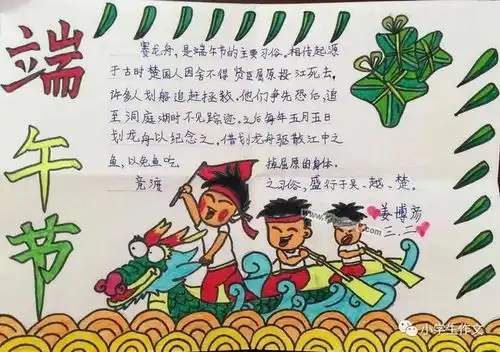 端午节
赛龙舟，是端午节的主要习俗。相传起源
于古时楚国人因舍不得贤臣屈原投江死去，
许多人划船追赶拯救。他们争先恐后，追
至洞庭湖时不见踪迹。之后每年五月五日
划龙舟以纪念之。借划龙舟驱散江中之
鱼，以免鱼吃 掉屈原的身体。
竞渡 之习俗，盛行于吴、越、楚。
姜博
三.二
小学生作文